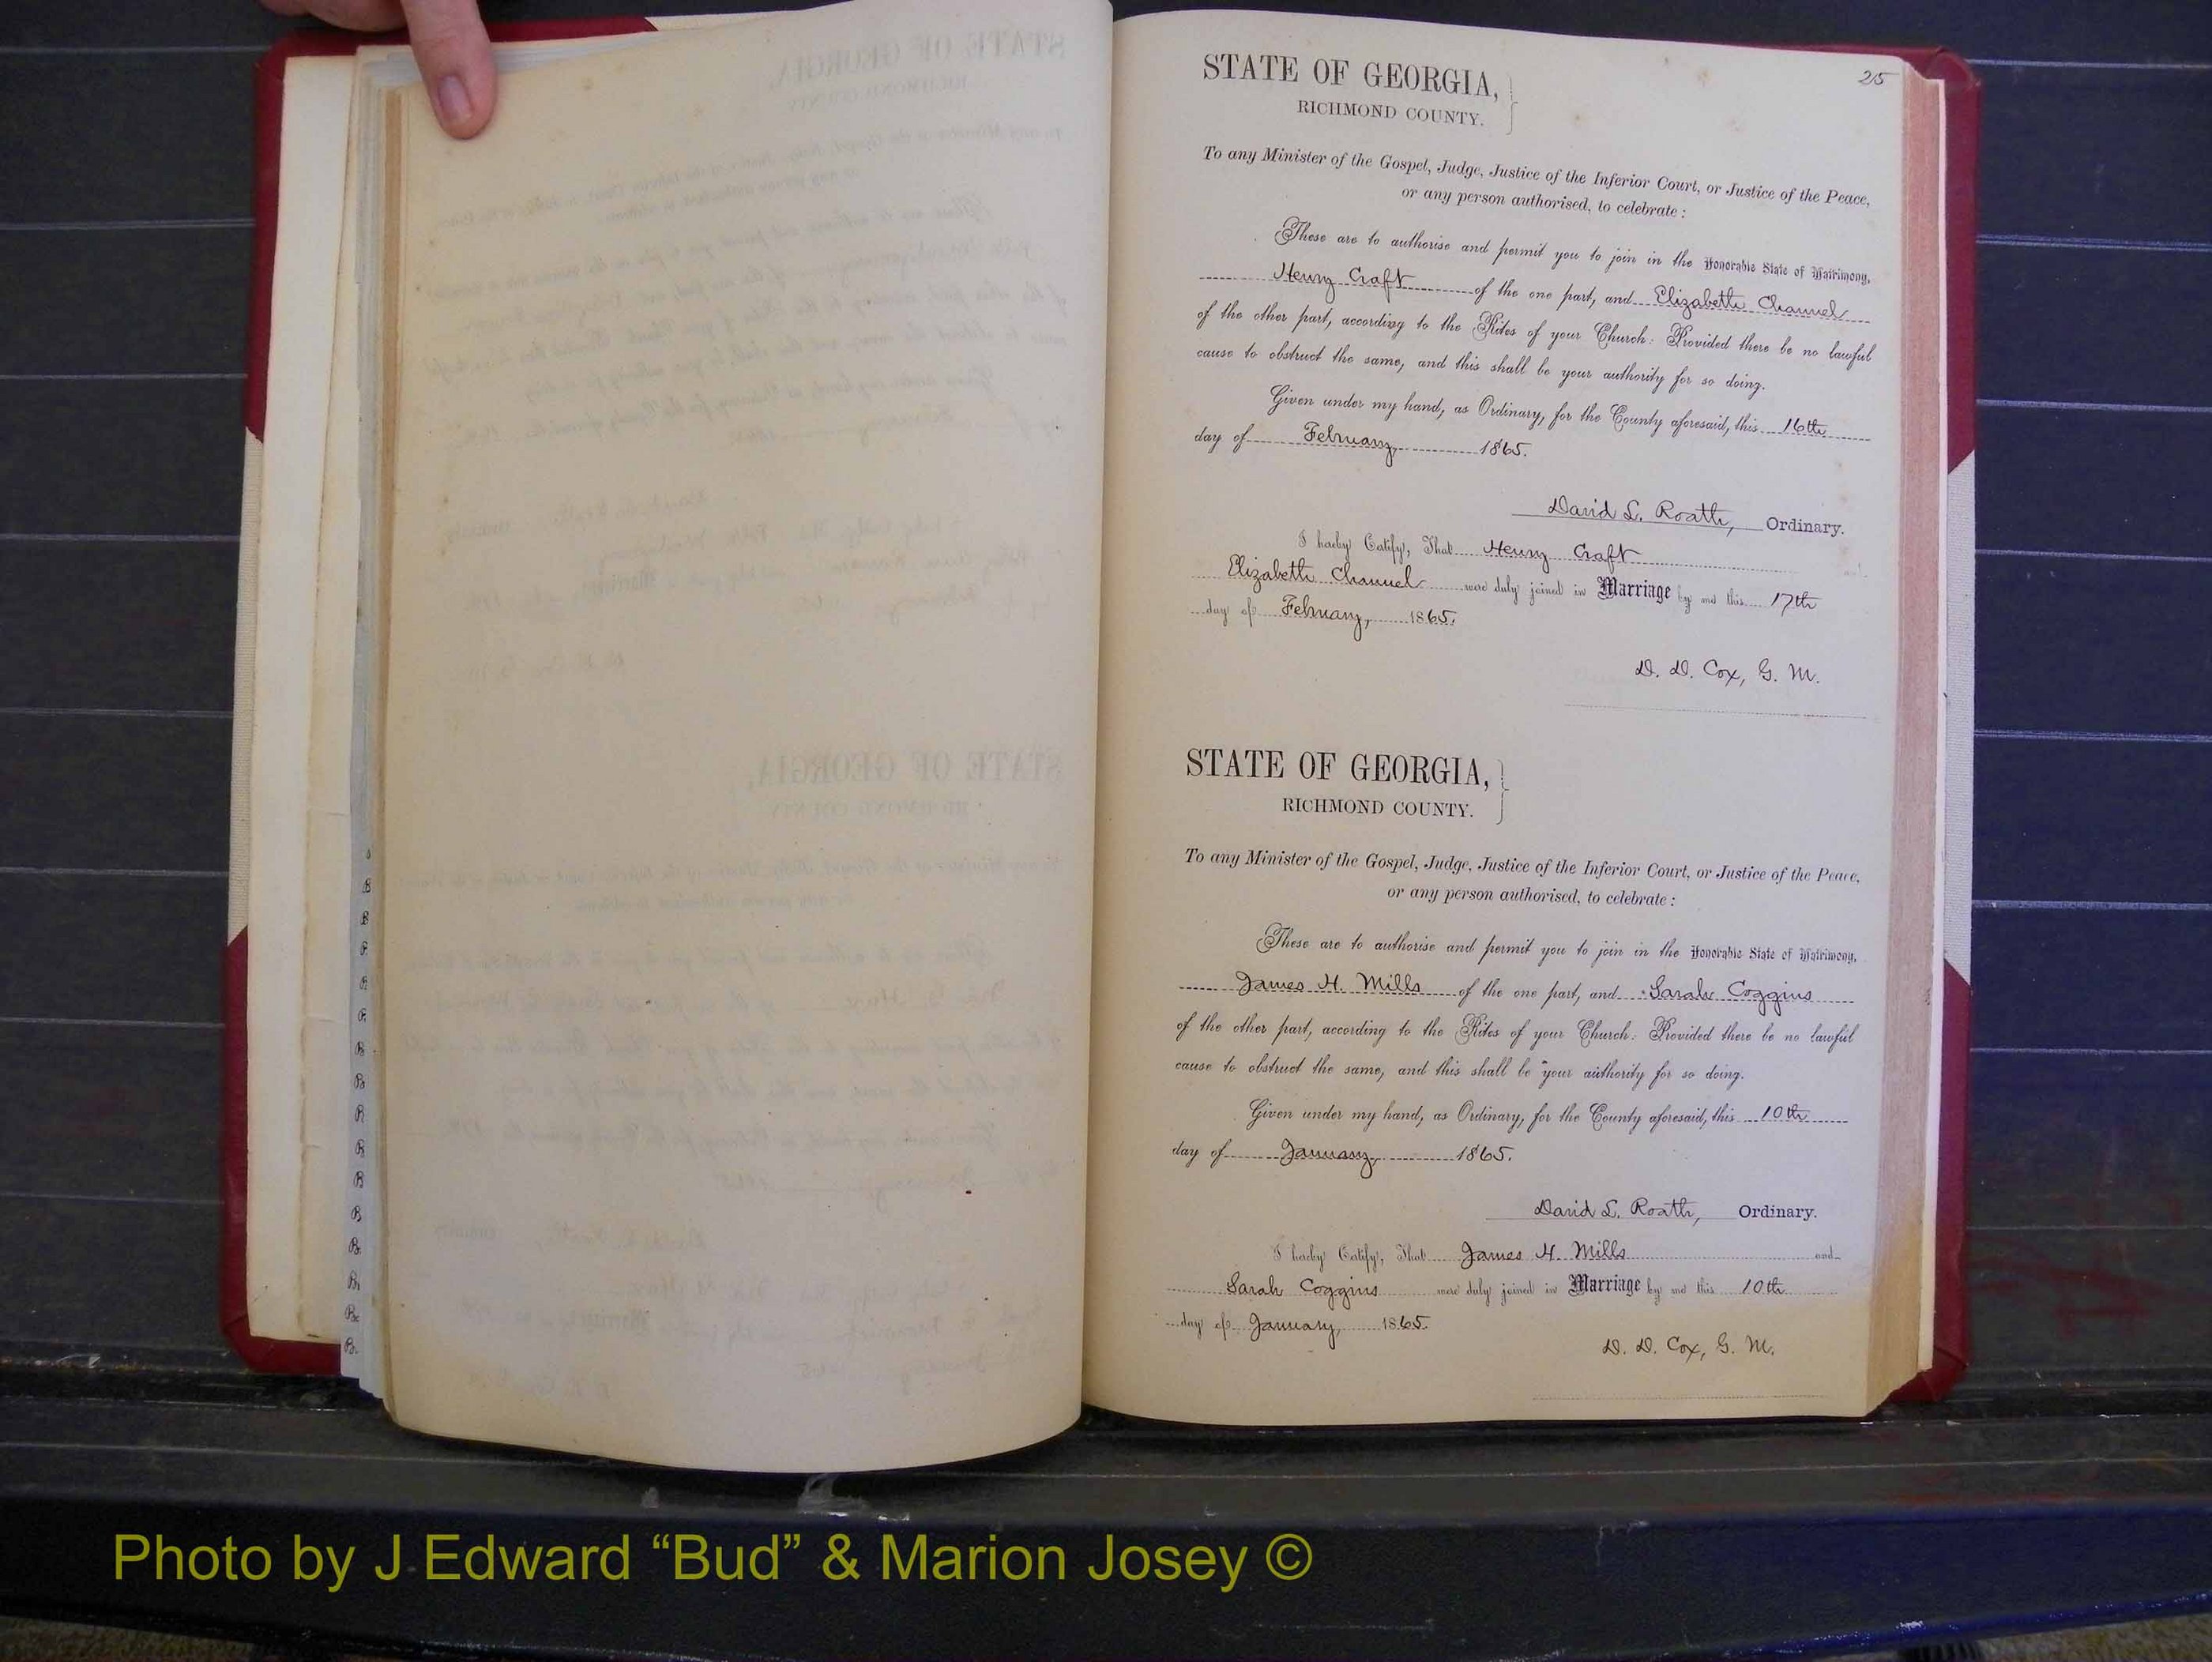 25
STATE OF GEORGIA,
RICHMOND COUNTY.
To any Minister of the Gospel, Judge, Justice of the Inferior Court, or Justice of the Peace,
or any person authorised, to celebrate:
These are to authorise and permit you to join in the Honorable State of Matrimony,
Henry Craft of the one part, and Elizabeth Channel
of the other part, according to the Rites of your Church: Provided there be no lawful
cause to obstruct the same, and this shall be your authority for so doing.
Given under my hand, as Ordinary, for the County aforesaid, this 16th
day of February, 1865.
David L. Roath, Ordinary.
I hereby Certify, That Henry Craft
Elizabeth Channel were duly joined in Marriage by me this 17th
day of February, 1865.
D. D. Cox, G. M.
STATE OF GEORGIA,
RICHMOND COUNTY.
To any Minister of the Gospel, Judge, Justice of the Inferior Court, or Justice of the Peace,
or any person authorised, to celebrate:
These are to authorise and permit you to join in the Honorable State of Matrimony,
James H. Mills of the one part, and Sarah Coggins
of the other part, according to the Rites of your Church: Provided there be no lawful
cause to obstruct the same, and this shall be your authority for so doing.
Given under my hand, as Ordinary, for the County aforesaid, this 10th
day of January, 1865.
David L. Roath, Ordinary.
I hereby Certify, That James H. Mills and
Sarah Coggins were duly joined in Marriage by me this 10th
day of January, 1865.
D. D. Cox, G. M.
Photo by J Edward “Bud” & Marion Josey ©